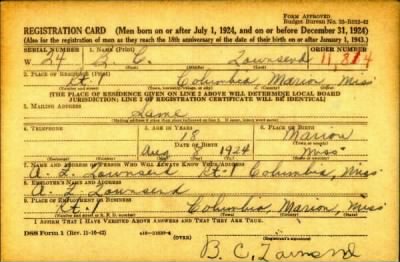 FORM APPROVED
REGISTRATION CARD (Men born on or after July 1, 1924, and on or before December 31, 1924)
(Also for the registration of men as they reach the 18th anniversary of the date of their birth on or after January 1, 1943.)
SERIAL NUMBER 1. NAME (Print) ORDER NUMBER
W 24 B. C. Townsend 11,814
2. PLACE OF RESIDENCE (Print)
Rt. 1 Columbia, Marion, Miss
[THE PLACE OF RESIDENCE GIVEN ON LINE 2 ABOVE WILL DETERMINE LOCAL BOARD
JURISDICTION; LINE 2 OF REGISTRATION CERTIFICATE WILL BE IDENTICAL]
3. MAILING ADDRESS
Same
4. TELEPHONE 5. AGE IN YEARS 6. PLACE OF BIRTH
18 Marion
DATE OF BIRTH
Aug 1924 Miss
7. NAME AND ADDRESS OF PERSON WHO WILL ALWAYS KNOW YOUR ADDRESS
A. L. Townsend Rt. 1 Columbia, Miss
8. EMPLOYER'S NAME AND ADDRESS
A. L. Townsend
9. PLACE OF EMPLOYMENT OR BUSINESS
Rt. 1 Columbia, Marion, Miss
I AFFIRM THAT I HAVE VERIFIED ABOVE ANSWERS AND THAT THEY ARE TRUE.
DSS Form 1 (Rev. 11-16-42)
B. C. Townsend
(Registrant's signature)